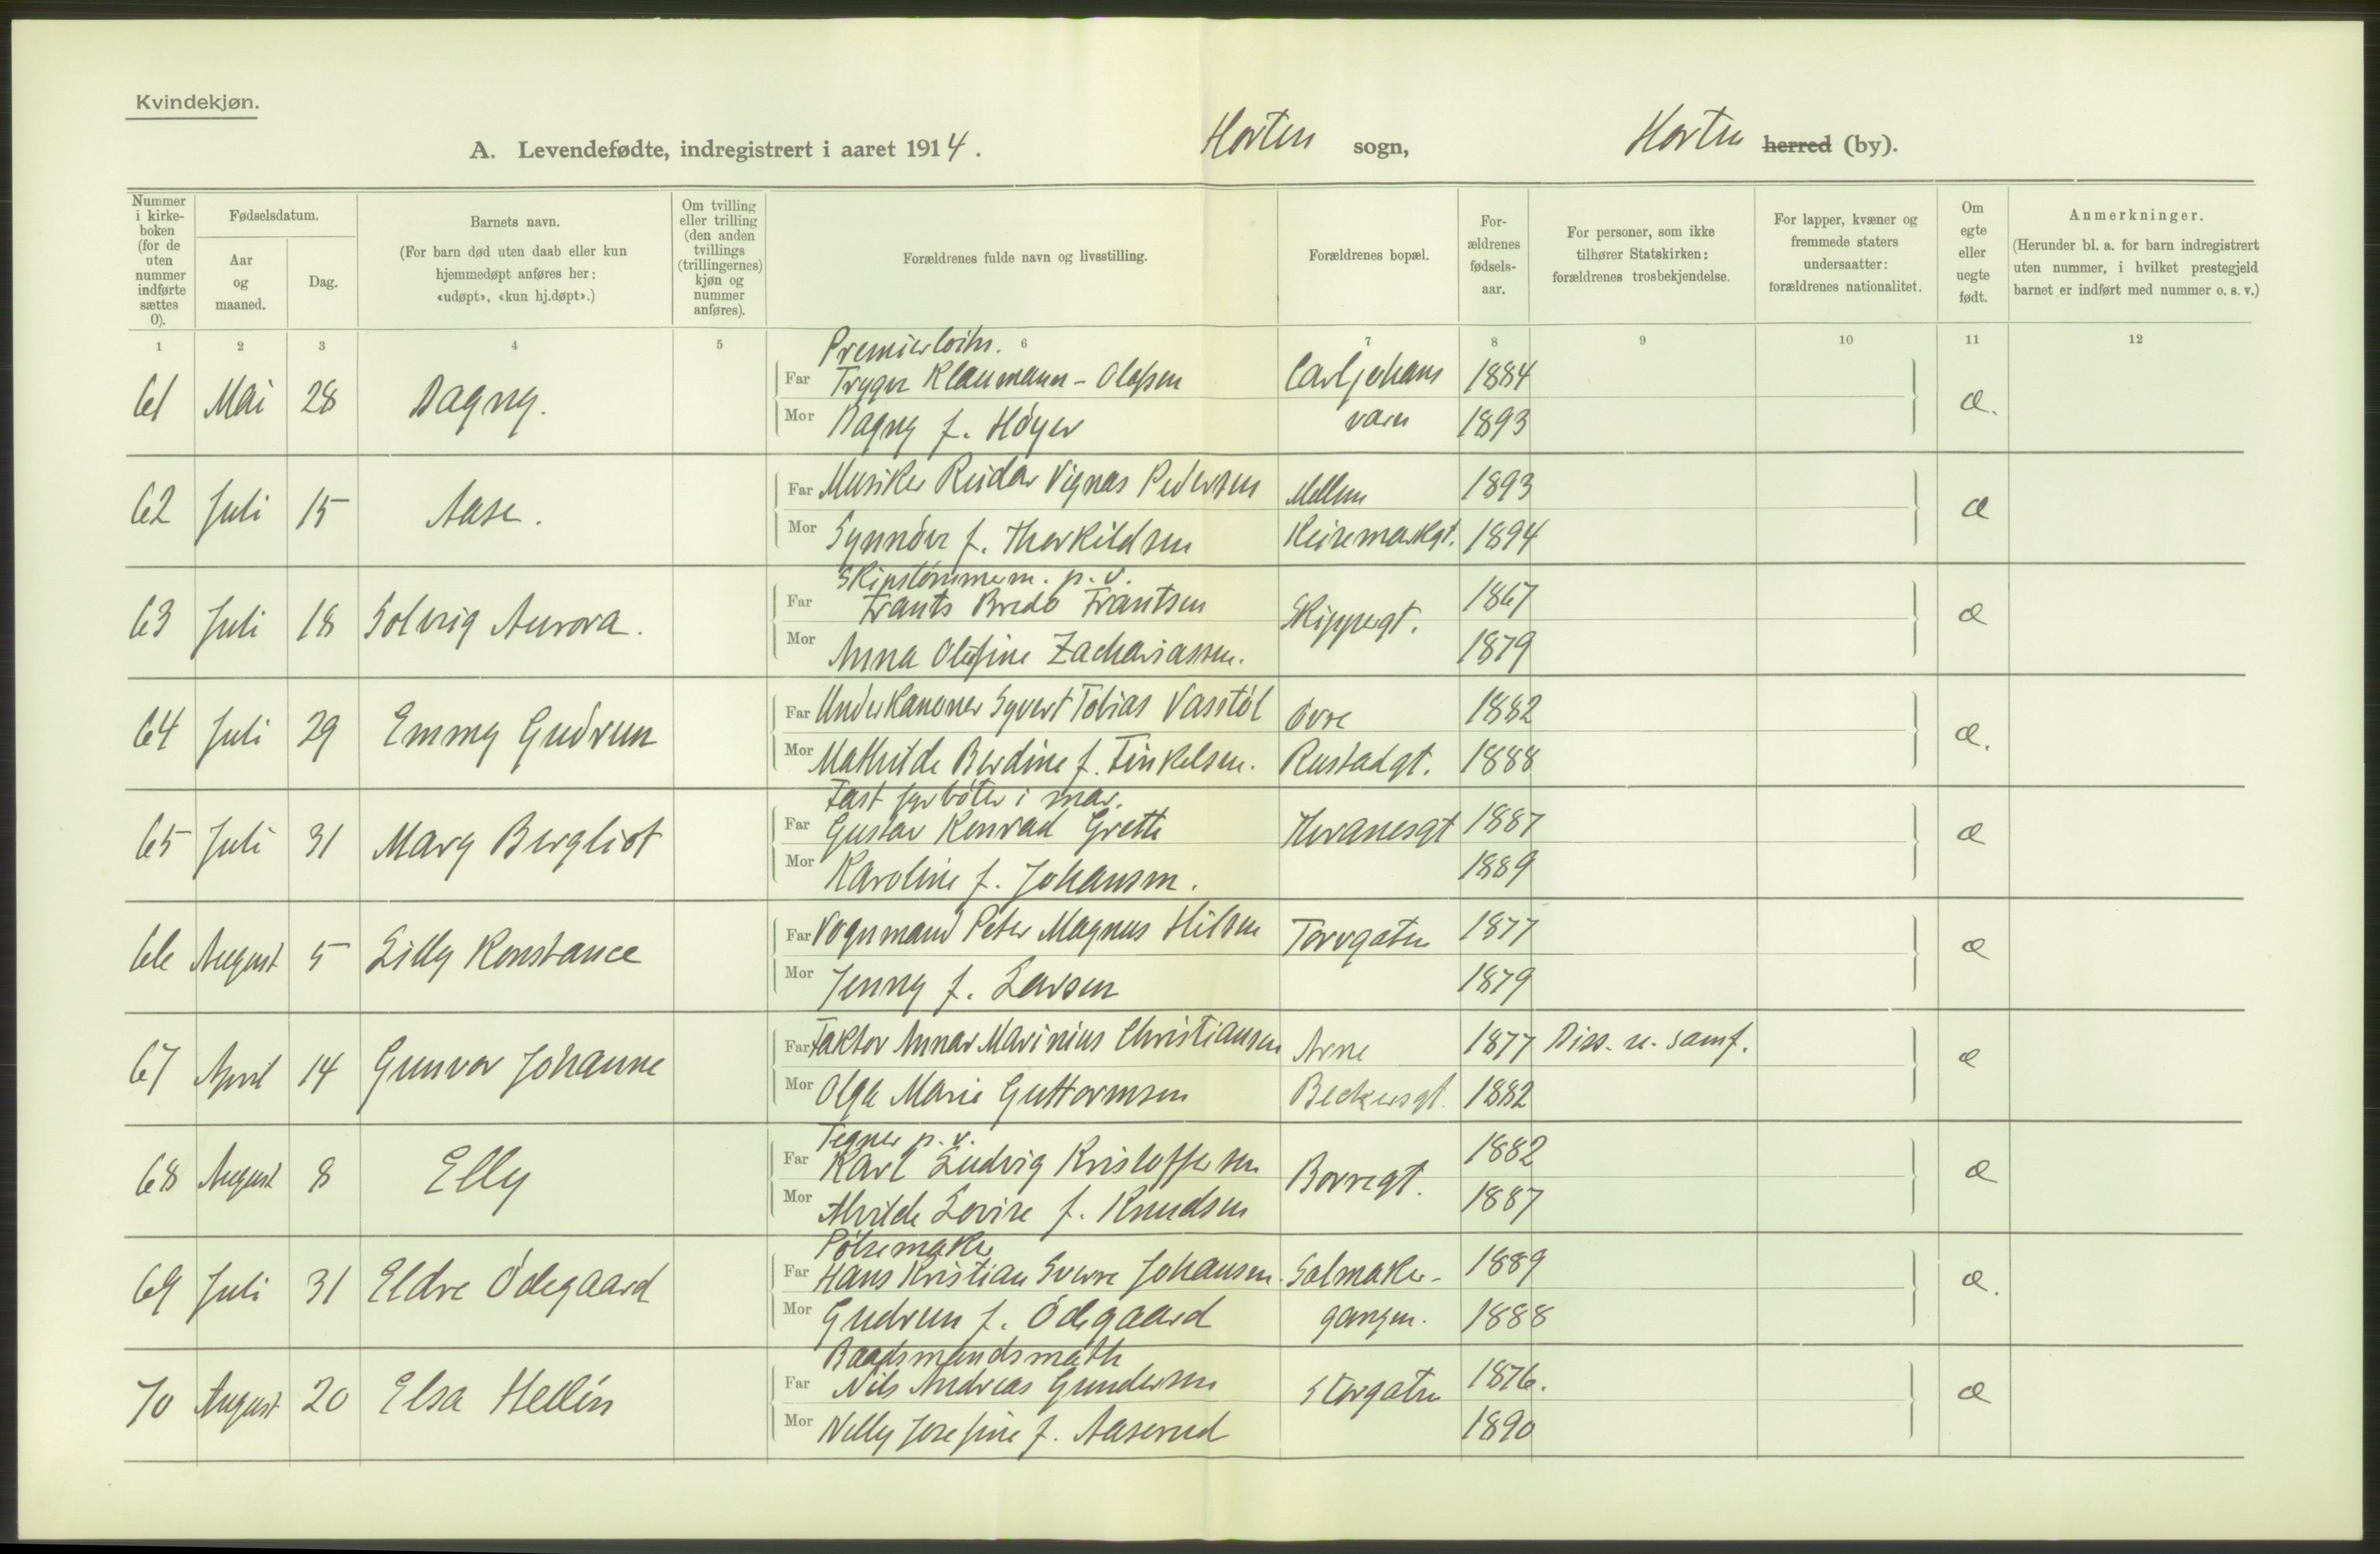 Kvindekjøn.
A. Levendefødte, indregistrert i aaret 1914. Horten sogn, Horten herred (by).
Nummer i kirkeboken (for de uten nummer indførte sættes 0).
Fødselsdatum.
Aar og maaned.
Dag.
Barnets navn.
(For barn død uten daab eller kun hjemmedøpt anføres her: «udøpt», «kun hj.døpt».)
Om tvilling eller trilling (den anden tvillings (trillingernes) kjøn og nummer anføres).
Forældrenes fulde navn og livsstilling.
Forældrenes bopæl.
Forældrenes fødselsaar.
For personer, som ikke tilhører Statskirken: forældrenes trosbekjendelse.
For lapper, kvæner og fremmede staters undersaatter: forældrenes nationalitet.
Om egte eller uegte født.
Anmerkninger.
(Herunder bl. a. for barn indregistrert uten nummer, i hvilket prestegjeld barnet er indført med nummer o. s. v.)
1 2 3 4 5 6 7 8 9 10 11 12
Premierløitn.
61 Mai 28 Dagny. Far Trygve Klaumann-Olafsen Carljohans 1884 æ.
Mor Dagny f. Høyer værn 1893
62 Juli 15 Aase. Far Musiker Reidar Vignæs Pedersen Mellem 1893 æ
Mor Synnöve f. Therkildsen Keisemarkgt. 1894
Skipstømmerm. p. v.
63 Juli 18 Solveig Aurora. Far Frants Bredo Frantsen Skippergt. 1867 æ
Mor Anna Olefine Zachariassen. 1879
64 Juli 29 Emmy Gudrun Far Underkanoner Syvert Tobias Vasstöl övre 1882 æ.
Mor Mathilde Berdine f. Finkelsen. Rustadgt. 1888
Fast fyrböter i mar.
65 Juli 31 Mary Bergliot Far Gustav Konrad Grette Thranesgt 1887 æ
Mor Karoline f. Johansen. 1889
66 August 5 Lilly Konstance Far Vognmand Peter Magnus Hilsen Torvgaten 1877 æ
Mor Jenny f. Larsen 1879
67 April 14 Gunvor Johanne Far Faktor Annar Marinius Christiansen Arne 1877 Diss. u. samf. æ
Mor Olga Marie Guttormsen Beckersgt. 1882
Tegner p. v.
68 August 8 Elly Far Karl Ludvig Kristoffersen Borregt. 1882 æ
Mor Alvilde Lovise f. Knudsen 1887
Pölsemaker
69 Juli 31 Eldre Ödegaard Far Hans Kristian Sverre Johansen. Salmaker- 1889 æ.
Mor Gudrun f. Ödegaard gangen. 1888
Baadsmandsmath
70 August 20 Elsa Hellén Far Nils Andreas Gundersen Storgaten 1876. æ
Mor Nelly Josefine f. Aaserud 1890